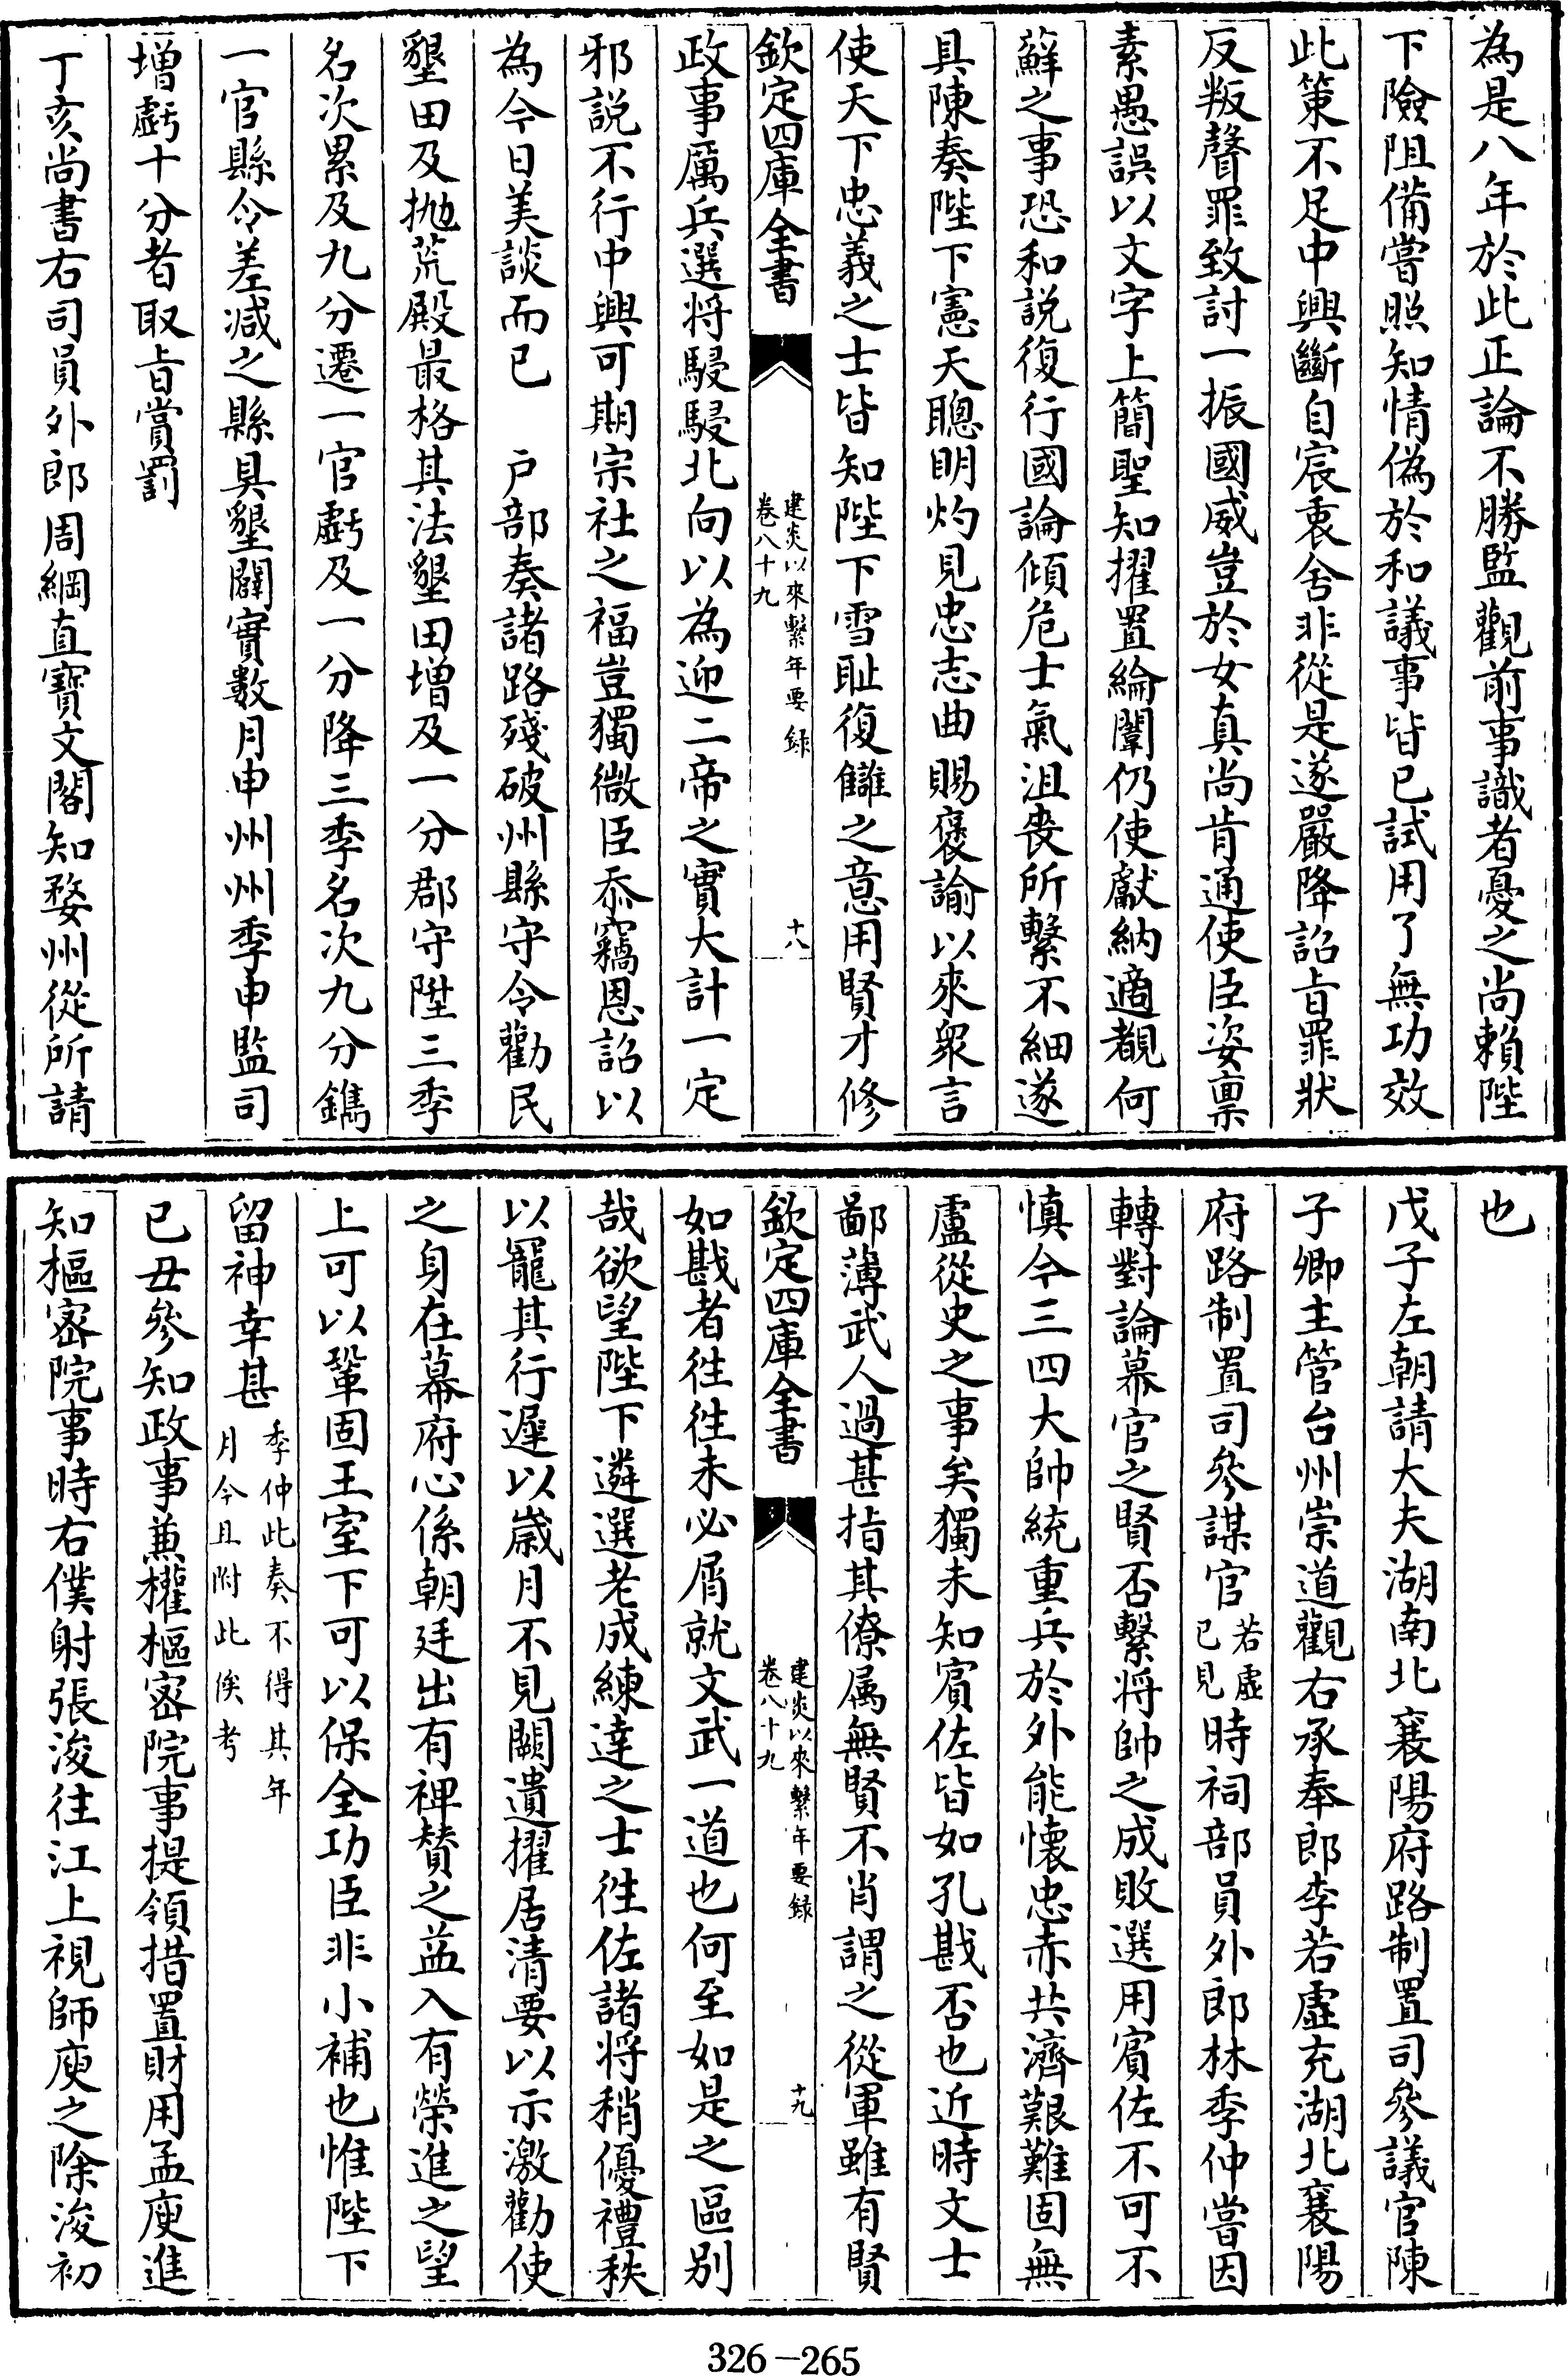 為是八年於此正論不勝監觀前事識者憂之尚賴陛
下險阻備嘗照知情偽於和議事皆已試用了無功效
此策不足中興斷自宸衷舍非從是遂嚴降詔㫖罪狀
反叛聲罪致討一振國威豈於女真尚肯通使臣姿禀
素愚誤以文字上簡聖知擢置綸闈仍使獻納適覩何
蘚之事恐和説復行國論傾危士氣沮喪所繫不細遂
具陳奏陛下憲天聰明灼見忠志曲賜褒諭以來衆言
使天下忠義之士皆知陛下雪耻復讎之意用賢才修
欽定四庫全書
建炎以來繫年要録
卷八十九
十八
政事厲兵選将駸駸北向以為迎二帝之實大計一定
邪説不行中興可期宗社之福豈獨微臣忝竊恩詔以
為今日美談而已　户部奏諸路殘破州縣守令勸民
墾田及抛荒殿最格其法墾田増及一分郡守陞三季
名次累及九分遷一官虧及一分降三季名次九分鐫
一官縣令差減之縣具墾闢實數月申州州季申監司
增虧十分者取㫖賞罰
丁亥尚書右司員外郎周綱直寳文閣知婺州從所請
也
戊子左朝請大夫湖南北襄陽府路制置司參議官陳
子卿主管台州崇道觀右承奉郎李若虚充湖北襄陽
府路制置司參謀官若虚已見時祠部員外郎林季仲嘗因
轉對論幕官之賢否繫将帥之成敗選用賔佐不可不
慎今三四大帥統重兵於外能懷忠赤共濟艱難固無
盧從史之事矣獨未知賔佐皆如孔戡否也近時文士
鄙薄武人過甚指其僚属無賢不肖謂之從軍雖有賢
欽定四庫全書
建炎以來繫年要録
卷八十九
十九
如戡者徃徃未必屑就文武一道也何至如是之區别
哉欲望陛下遴選老成練達之士徃佐諸將稍優禮秩
以寵其行遲以嵗月不見闕遺擢居清要以示激勸使
之身在幕府心係朝廷出有裨賛之益入有榮進之望
上可以鞏固王室下可以保全功臣非小補也惟陛下
留神幸甚季仲此奏不得其年月今且附此俟考
已丑參知政事兼權樞密院事提領措置財用孟庾進
知樞密院事時右僕射張浚往江上視師庾之除浚初
326-265